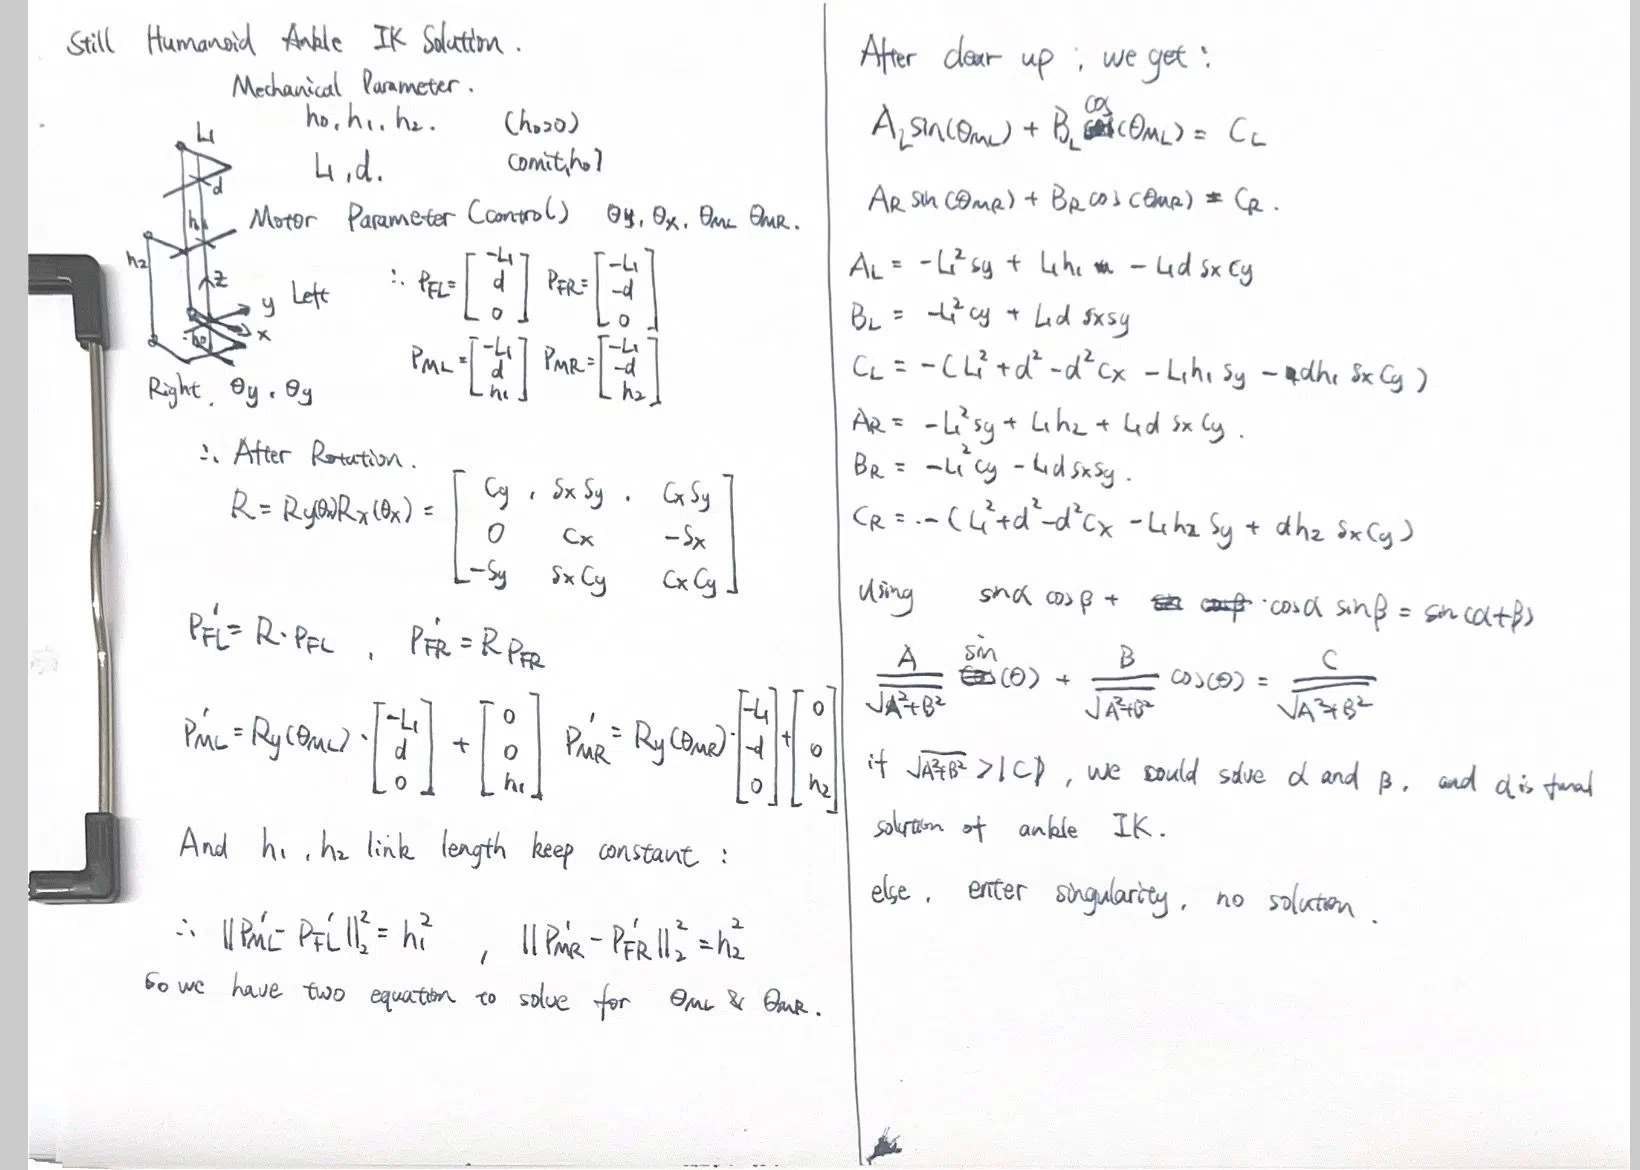 Still Humanoid Ankle IK Solution.
Mechanical Parameter.
h0, h1, h2. (h0≥0)
L1, d. (omit, h0)
L1
d
h1
h2
z
y Left
x
h0
Right. θy, θy
Motor Parameter (control) θy, θx, θML θMR.
∴ PFL = [-L1 d 0] PFR = [-L1 -d 0]
PML = [-L1 d h1] PMR = [-L1 -d h2]
∴ After Rotation.
R = Ry(θx)Rx(θx) = [Cy, SxSy, CxSy
0 Cx -Sx
-Sy SxCy CxCy]
P'FL = R·PFL, P'FR = R PFR
P'ML = Ry(θML)·[-L1 d 0] + [0 0 h1] P'MR = Ry(θMR)·[-L1 -d 0] + [0 0 h2]
And h1, h2 link length keep constant:
∴ ||P'ML - P'FL||₂² = h1², ||P'MR - P'FR||₂² = h2²
So we have two equation to solve for θML & θMR.
After clear up, we get:
AL sin(θML) + BL cos(θML) = CL
AR sin(θMR) + BR cos(θMR) = CR.
AL = -L1²sy + L1h1 - L1d sx cy
BL = -L1²cy + L1d sxsy
CL = -(L1²+d²-d²cx - L1h1 sy - dh1 sx cy)
AR = -L1²sy + L1h2 + L1d sx cy.
BR = -L1²cy - L1d sxsy.
CR = -(L1²+d²-d²cx - L1h2 sy + dh2 sx cy)
Using sinα cosβ + cosα sinβ = sin(α+β)
A/√A²+B² sin(θ) + B/√A²+B² cos(θ) = C/√A²+B²
if √A²+B² > |C|, we could solve α and β, and α is final
solution of ankle IK.
else, enter singularity, no solution.